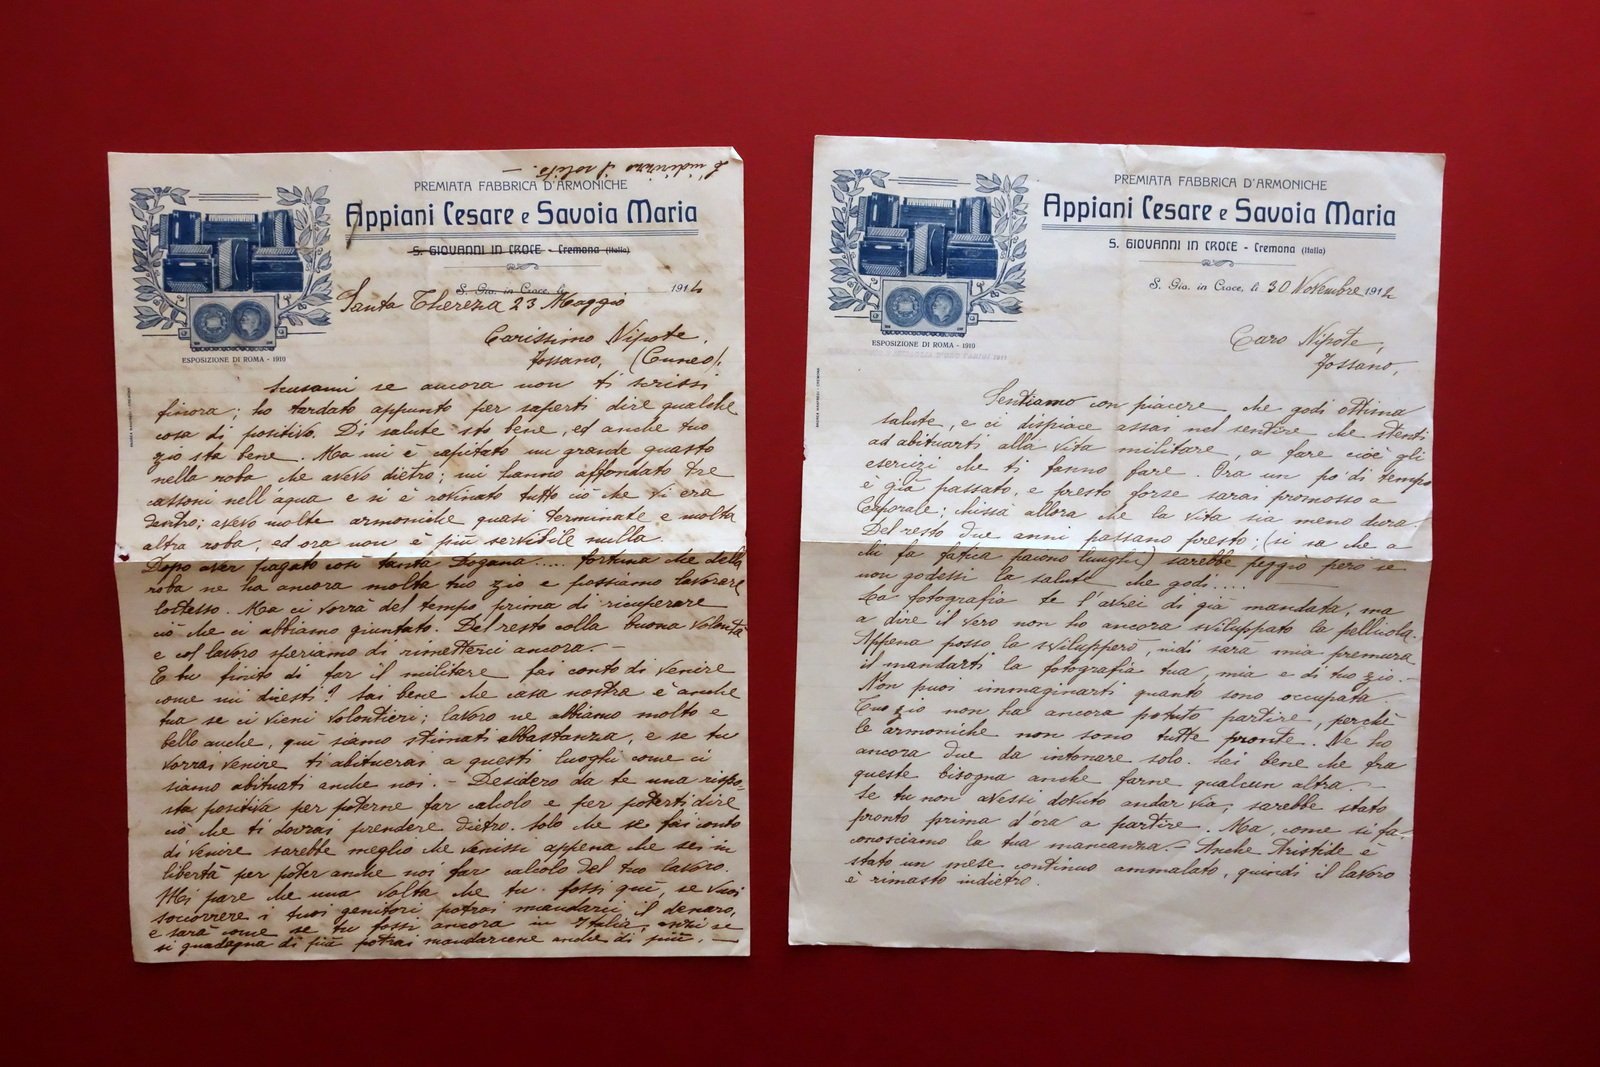 L'indirizzo il solito. —
PREMIATA FABBRICA D'ARMONICHE
Appiani Cesare e Savoia Maria
S. GIOVANNI IN CROCE - Cremona (Italia)
S. Gio. in Croce, li 191
Santa Thereza 23 Maggio
ESPOSIZIONE DI ROMA - 1910
Carissimo Nipote,
Fossano, (Cuneo).
Scusami se ancora non ti scrissi
finora; ho tardato appunto per saperti dire qualche
cosa di positivo. Di salute sto bene, ed anche tuo
zio sta bene. Ma mi è capitato un grande guasto
nella roba che avevo dietro; mi hanno affondato tre
cassoni nell'acqua e si è rovinato tutto ciò che vi era
dentro; avevo molte armoniche quasi terminate e molta
altra roba, ed ora non è più servibile nulla.
Dopo aver pagato così tanta Dogana..... fortuna che della
roba ne ha ancora molta tuo zio e possiamo lavorare
lostesso. Ma ci vorrà del tempo prima di ricuperare
ciò che ci abbiamo giuntato. Del resto colla buona volontà
e col lavoro speriamo di rimetterci ancora. —
E tu finito di far il militare fai conto di venire
come mi dicesti? Sai bene che casa nostra è anche
tua se ci vieni volontieri; lavoro ne abbiamo molto e
bello anche, qui siamo stimati abbastanza, e se tu
vorrai venire ti abituerai a questi luoghi come ci
siamo abituati anche noi. — Desidero da te una rispo-
sta positiva per poterne far calcolo e per poterti dire
ciò che ti dovrai prendere dietro. Solo che se fai conto
di venire sarebbe meglio che venissi appena che sei in
libertà per poter anche noi far calcolo del tuo lavoro.
Mi pare che una volta che tu fossi qui, se vuoi
soccorrere i tuoi genitori potrai mandarci il denaro,
e sarà come se tu fossi ancora in Italia, anzi se
si guadagna di più potrai mandarcene anche di più. —
PREMIATA FABBRICA D'ARMONICHE
Appiani Cesare e Savoia Maria
S. GIOVANNI IN CROCE - Cremona (Italia)
S. Gio. in Croce, li 30 Novembre 1912
ESPOSIZIONE DI ROMA - 1910
Caro Nipote,
Fossano,
Sentiamo con piacere che godi ottima
salute, e ci dispiace assai nel sentire che stenti
ad abituarti alla vita militare, a fare cioè gli
esercizi che ti fanno fare. Ora un pò di tempo
è già passato, e presto forse sarai promosso a
Caporale; chissà allora che la vita sia meno dura.
Del resto due anni passano presto; (si sa che a
chi fa fatica paiono lunghi) sarebbe peggio però se
non godessi la salute che godi....
La fotografia te l'avrei di già mandata, ma
a dire il vero non ho ancora sviluppato la pellicola.
Appena posso la svilupperò, indi sarà mia premura
il mandarti la fotografia tua, mia e di tuo zio. —
Non puoi immaginarti quanto sono occupata.
Tuo zio non ha ancora potuto partire, perchè
le armoniche non sono tutte pronte. Ne ho
ancora due da intonare solo. Sai bene che fra
queste bisogna anche farne qualcun altra. —
Se tu non avessi dovuto andar via, sarebbe stato
pronto prima d'ora a partire. Ma, come si fa-
conosciamo la tua mancanza. — Anche Aristide è
stato un mese continuo ammalato, quindi il lavoro
è rimasto indietro.